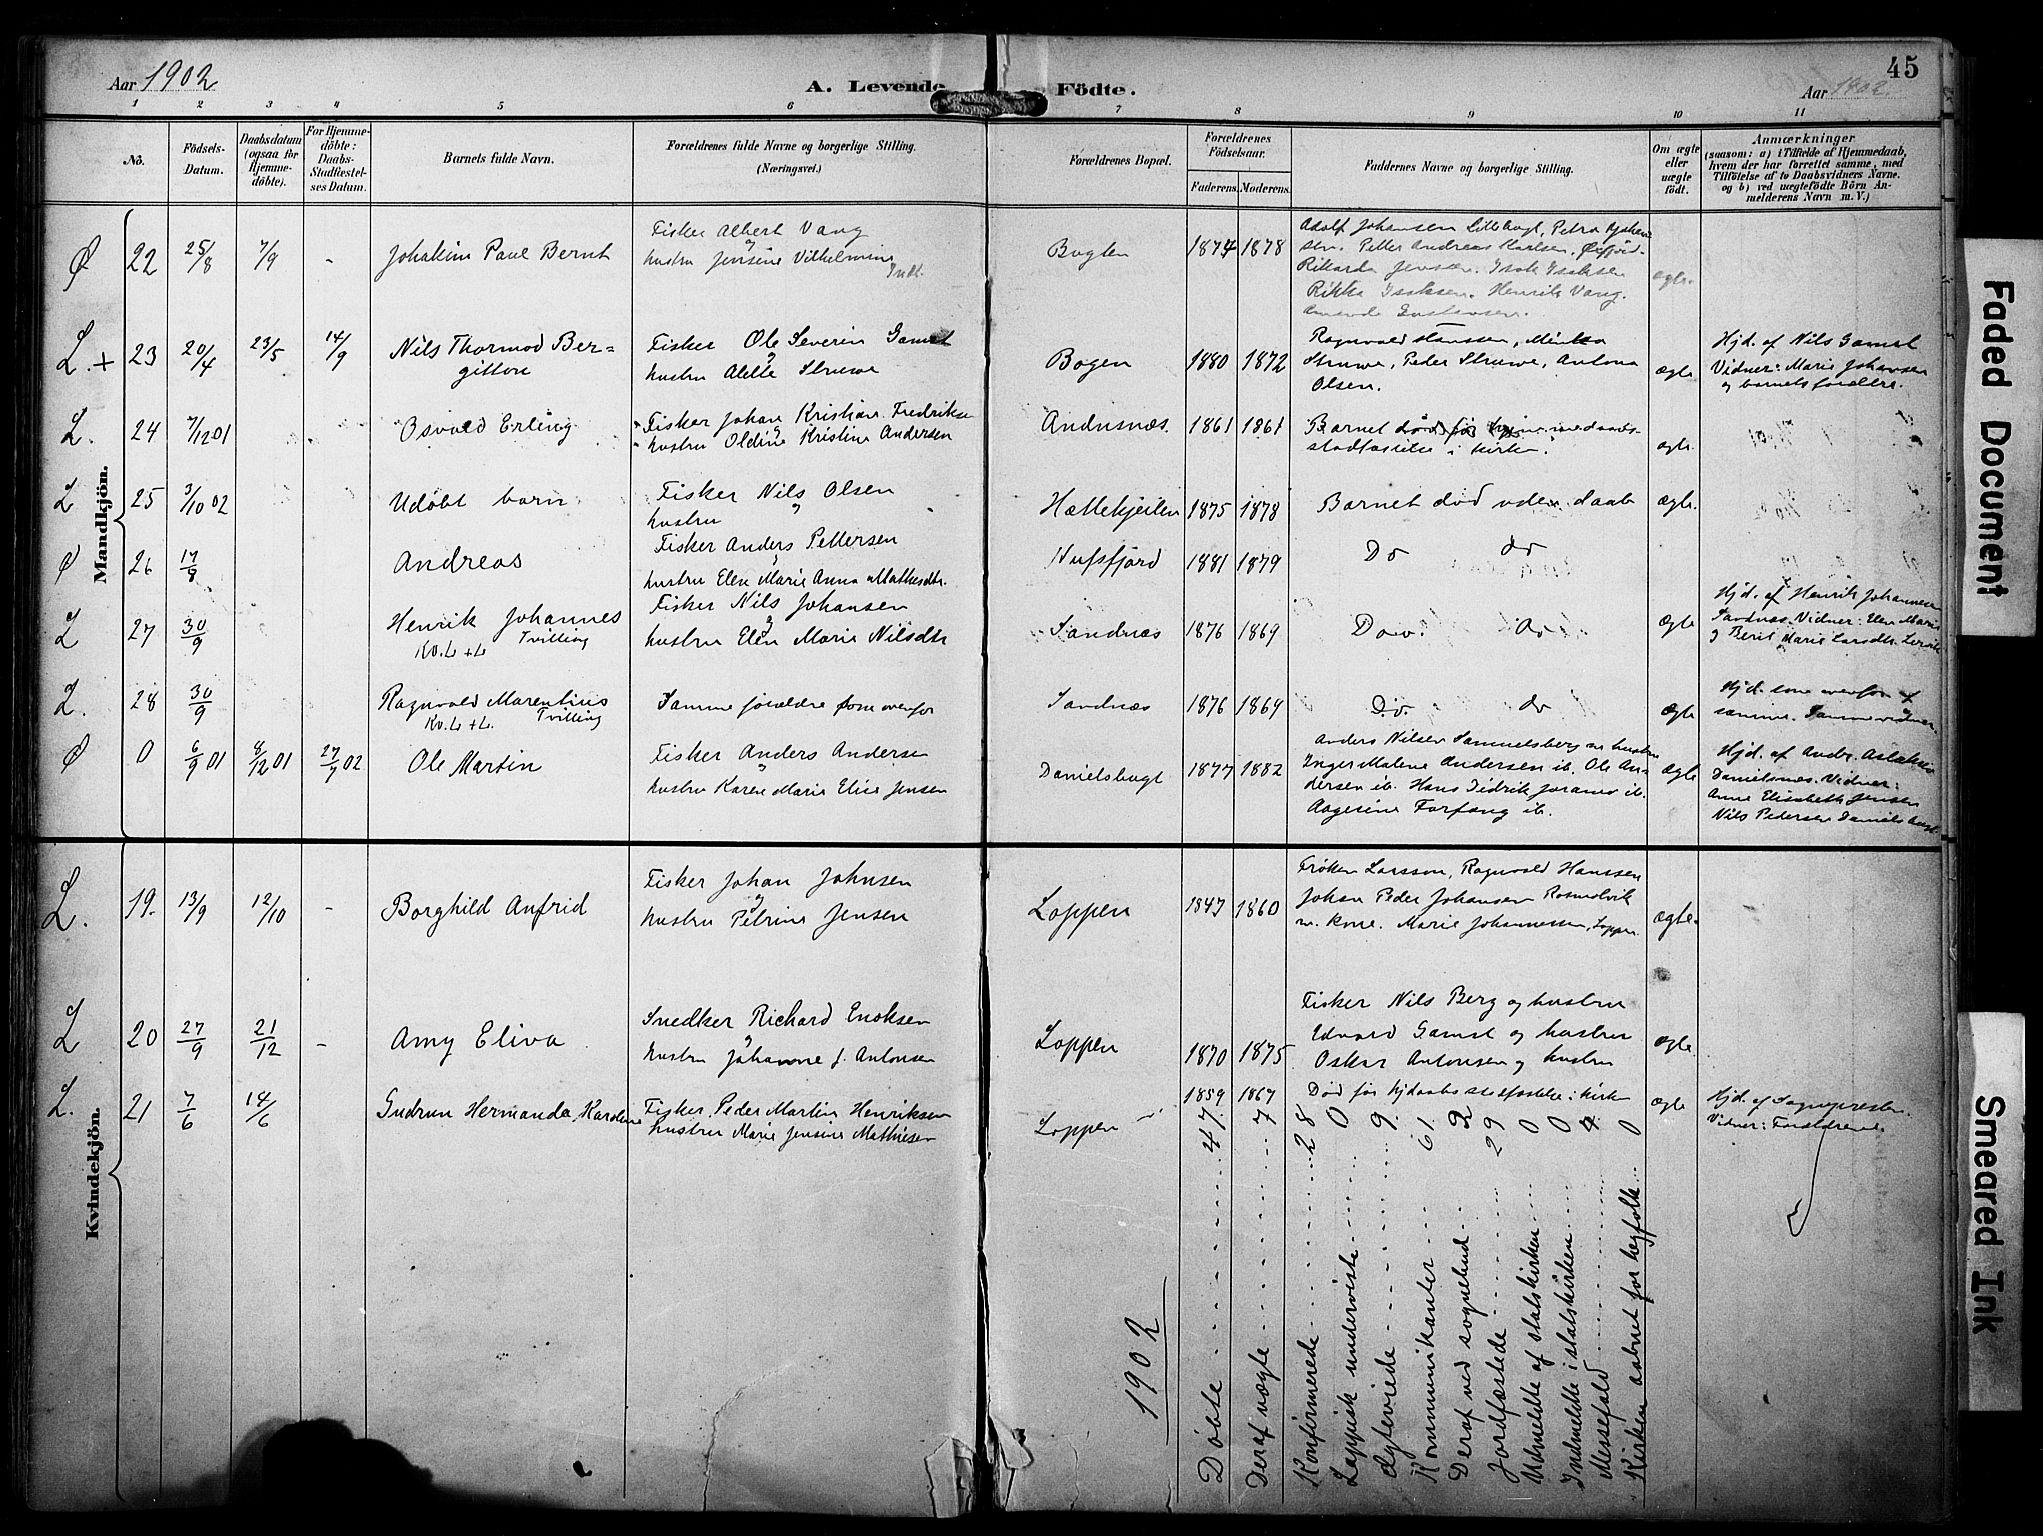 45
Aar 1902
A. Levende Födte.
Aar 1902
1 2 3 4 5 6 7 8 9 10 11
No.
Födsels-Datum.
Daabsdatum (ogsaa for Hjemme-döbte).
For Hjemme-döbte: Daabs-Stadfæstel-ses Datum.
Barnets fulde Navn.
Forældrenes fulde Navne og borgerlige Stilling.
(Næringsvei.)
Forældrenes Bopæl.
Forældrenes Födselsaar.
Faderens. Moderens.
Faddernes Navne og borgerlige Stilling.
Om ægte eller uægte födt.
Anmærkninger
(saasom: a) i Tilfælde af Hjemmedaab,
hvem der har forrettet samme, med
Tilföielse af to Daabsvidners Navne.
og b) ved uægtefödte Börn An-
melderens Navn m. V.)
Mandkjön.
Ø 22 25/8 7/9 - Johakim Paul Bernt
Fisker Albert Vang
hustru Jensine Vilhelmine
Bogten 1874 1878
Adolf Johansen Lillebugt, Petra
Petter Andreas Karlsen, Øxfjord
Rikarda Jensen. Isak Isaksen
Rikka Isaksen. Henrik Vang.
Amanda Gustavsen.
ægte.
L. + 23 20/4 23/5 14/9 Nils Thormod Ber=
gitton
Fisker Ole Severin Gamst
og
hustru Alette Struwe
Bogen 1880 1872
Ragnvald Hanssen, Minka
Struwe, Peder Struwe, Antona
Olsen.
ægte
Hjd. af Nils Gamst
Vidner: Marie Johansen
og barnets forældre.
L. 24 7/12 01 Osvald Erling
Fisker Johan Kristian Fredriksen
og
hustru Oldine Kristine Andersen
Andsnæs. 1861 1861
Barnet død før hjemmedaabs-
stadfæstelse i kirken.
ægte.
L 25 3/10 02 Udøbt barn
Fisker Nils Olsen
hustru
Hættekjeilen 1875 1878
Barnet død uden daab
ægte.
Ø 26 17/8 Andreas
Fisker Anders Pettersen
og
hustru Elen Marie Anna Mathisdtr.
Nufsfjord 1881 1879
Do do
L 27 30/9 Henrik Johannes
Kv. L + L Tvilling
Fisker Nils Johansen
og
hustru Elen Marie Nilsdtr
Sandnæs 1876 1869
Do. do
ægte
Hjd. af Henrik Johannesen
Sandnæs. Vidner: Elen Marie
og Berit Marie Larsdtr.
L. 28 30/9 Ragnvald Marentius
Kv. L + L. Tvilling
Samme forældre som ovenfor
Sandnæs 1876 1869
Do. do
ægte
Hjd. som ovenfor af
samme. Samme vidner.
Ø 0 6/9 01 8/12 01 27/7 02 Ole Martin
Fisker Anders Andersen
og
hustru Karen Marie Elise Jensen
Danielsbugt 1877 1882
Anders Nilsen Samuelsberg m hustru
Inger Malene Andersen ib. Ole An-
dersen ib. Hans Didrik Joramo ib.
Aagesine Forfang ib.
ægte
Hjd. af Andr. Aslaksen
Danielsnæs. Vidner:
Anne Elisabeth Jensen
Nils Pedersen Danielsbugt.
Kvindekjön.
L. 19. 13/9 12/10 - Borghild Anfrid
Fisker Johan Johnsen
og
hustru Petrine Jensen
Loppen 1847 1860
Frøken Larsson, Ragnvald Hanssen
Johan Peder Johansen
m. kone. Marie Johannessen, Loppen.
ægte.
L 20 27/9 21/12 - Amy Eliva
Snedker Richard Enoksen
og
hustru Johanne f. Antonsen
Loppen 1870 1875
Fisker Nils Berg og hustru
Edvard Gamst og hustru
Oskar Antonsen og hustru
ægte.
L. 21 7/6 14/6 Gudrun Hermanda Karoline
Fisker Peder Martin Henriksen
hustru Marie Jensine Mathiesen
Loppen 1859 1867
Død før hjdaabs stadfæstelse i kirken
ægte
Hjd. af Sognepresten.
Vidner: Forældrene.
1902
Döbte 47.
Deraf uægte 7
Konfirmerede 28
Lappisk underviste 0
Ægteviede 9.
Kommunikanter 61.
Deraf ved sognebud 2
Jordfæstede 29
Udmeldte af statskirken 0
Indmeldte i statskirken 0
Messefald 4
Kirken aabnet for lægfolk 0
Faded Document
Smeared Ink